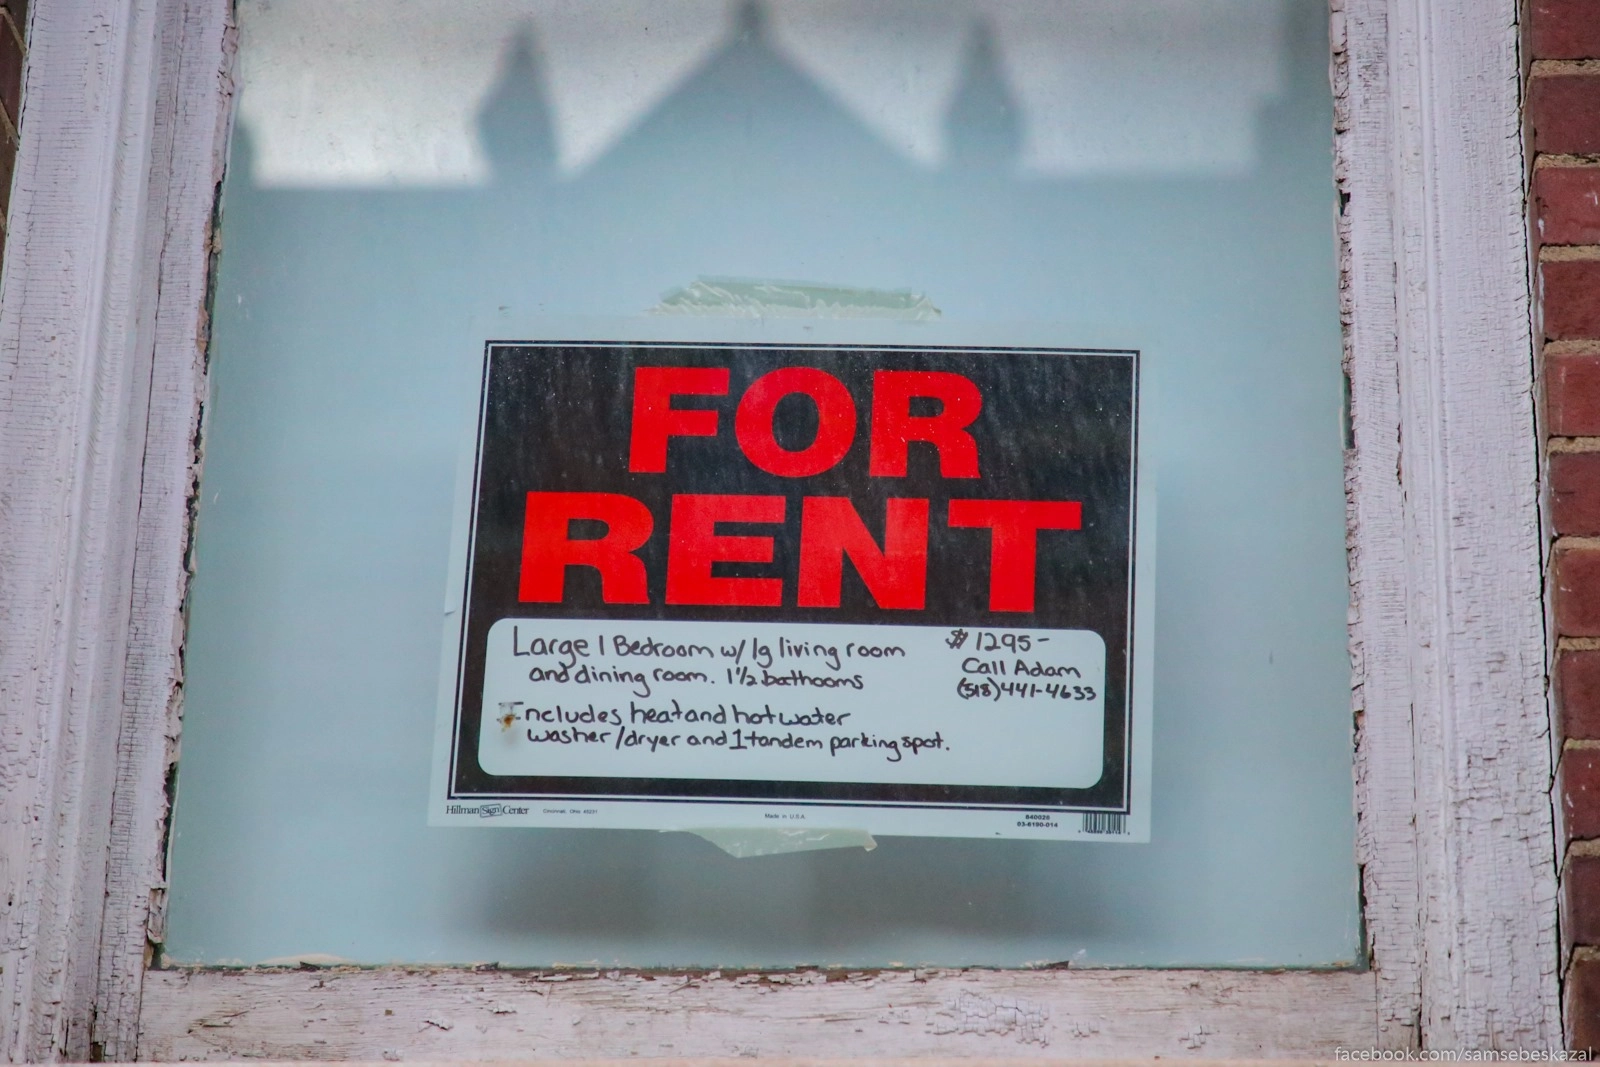 FOR
RENT
Large 1 Bedroom w/ lg living room
and dining room. 1½ bathooms
Includes heat and hot water
washer/dryer and 1 tandem parking spot.
$ 1295-
Call Adam
(518)441-4633
Hillman Sign Center
Cincinnati, Ohio 45231
Made in U.S.A.
840028
03-6190-014
facebook.com/samsebeskazal